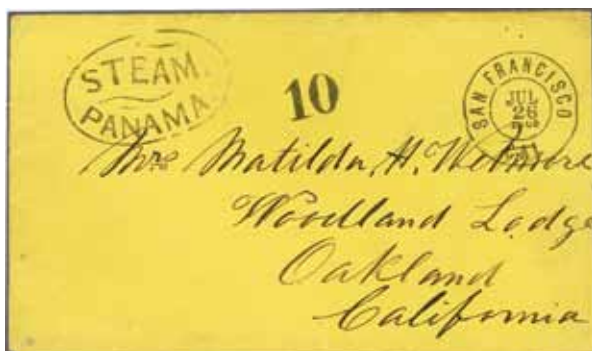 STEAM.
PANAMA.
10
SAN FRANCISCO
JUL
26
Mrs Matilda, H. Wetmore
Woodland Lodge
Oakland
California